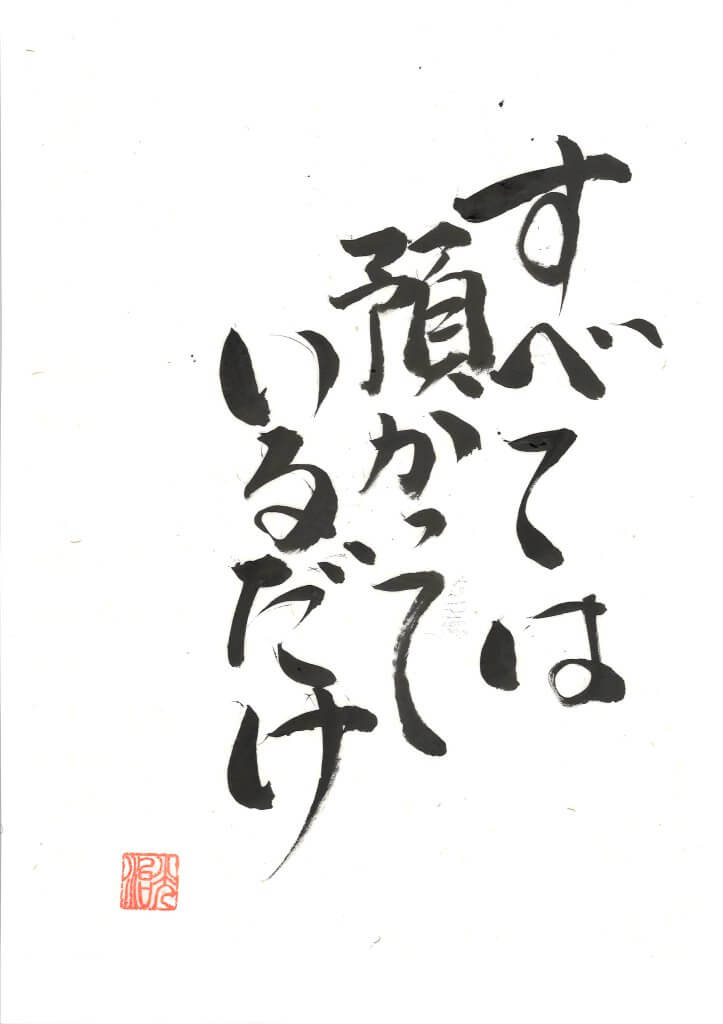 すべては
預かって
いるだけ